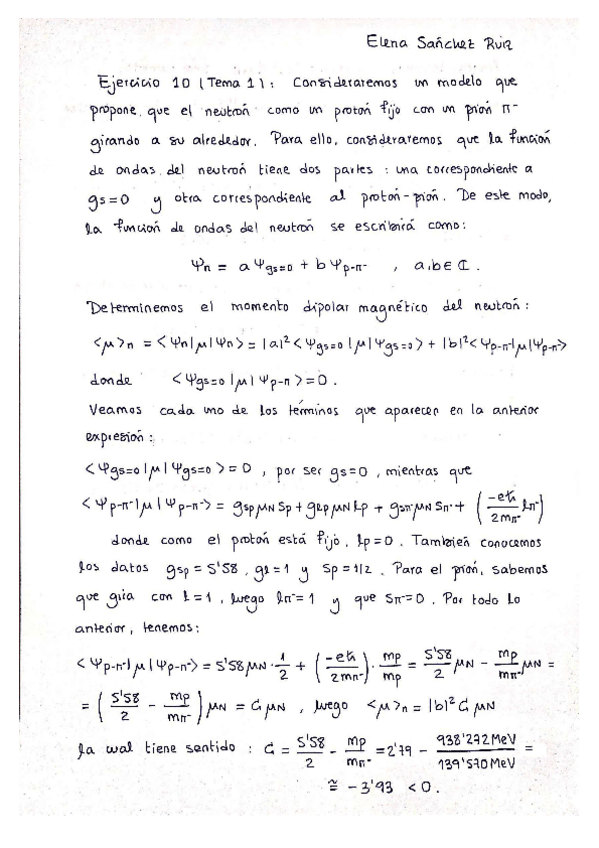 Elena Sańchez Ruiz
Ejercicio 10 (Tema 1): Consideraremos un modelo que
propone que el neutroń como un protoń fijo con un pioń π-
girando a su alrededor. Para ello, consideraremos que la funcioń
de ondas del neutroń tiene dos partes: una correspondiente a
gs=0 y otra correspondiente al protoń-pioń. De este modo,
la funcioń de ondas del neutroń se escribirá como:
Ψn = aΨgs=0 + bΨp-π- , a,b∈ℂ.
Determinemos el momento dipolar magnético del neutroń:
<μ>n = <Ψn|μ|Ψn> = |a|²<Ψgs=0|μ|Ψgs=0> + |b|²<Ψp-π-|μ|Ψp-π->
donde <Ψgs=0|μ|Ψp-π> = 0.
Veamos cada uno de los términos que aparecen en la anterior
expresioń:
<Ψgs=0|μ|Ψgs=0> = 0, por ser gs=0, mientras que
<Ψp-π-|μ|Ψp-π-> = gsp μN Sp + glp μN lp + gsπ- μN Sπ- + (-eħ/2mπ- lπ-)
donde como el protoń está fijo, lp=0. También conocemos
los datos gsp = 5'58, gl = 1 y Sp = 1/2. Para el pioń, sabemos
que gira con l=1, luego lπ-=1 y que Sπ-=0. Por todo lo
anterior, tenemos:
<Ψp-π-|μ|Ψp-π-> = 5'58 μN · 1/2 + (-eħ/2mπ-) · mp/mp = 5'58/2 μN - mp/mπ- μN =
= (5'58/2 - mp/mπ-) μN = G μN, luego <μ>n = |b|² G μN
la cual tiene sentido: G = 5'58/2 - mp/mπ- = 2'79 - 938'272 MeV/139'570 MeV =
≅ -3'93 < 0.